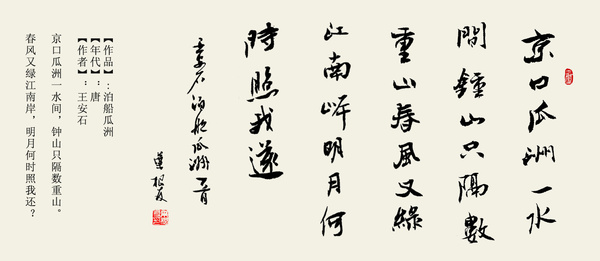 京口瓜洲一水
間鍾山只隔數
重山春風又綠
江南岸明月何
時照我還
王安石泊船瓜洲一首
【作品】：泊船瓜洲
【年代】：唐
【作者】：王安石
京口瓜洲一水间，钟山只隔数重山。
春风又绿江南岸，明月何时照我还？